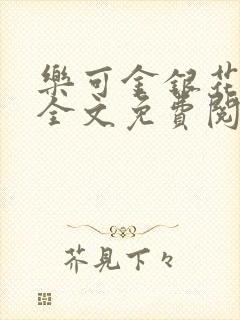 樂可金銀花
全文免費閱
芥見下々